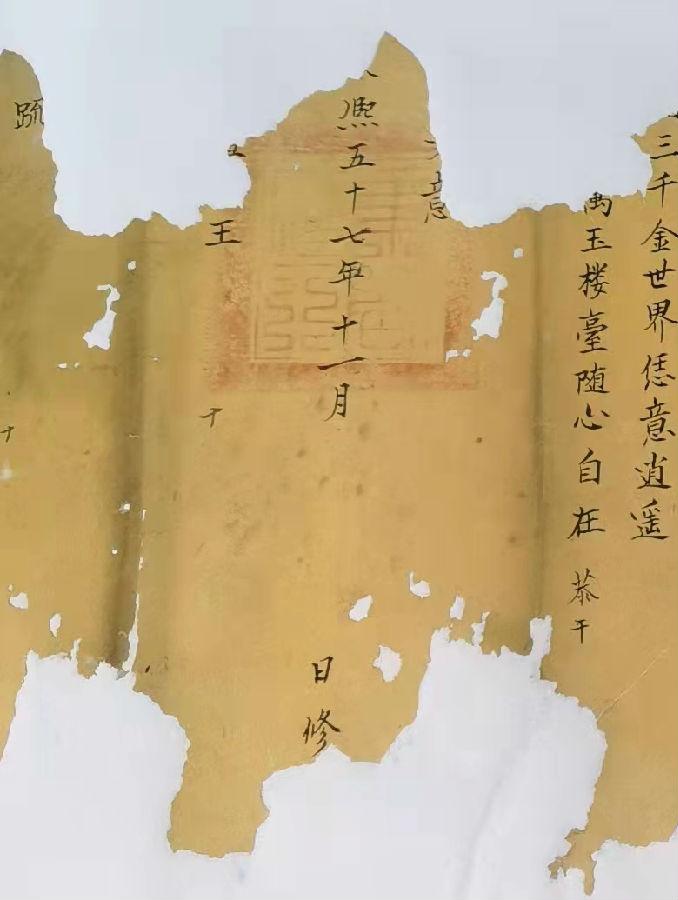 三千金世界恁意逍遥
禹玉楼臺随心自在 恭干
意
熙五十七年十一月 日修
王
疏